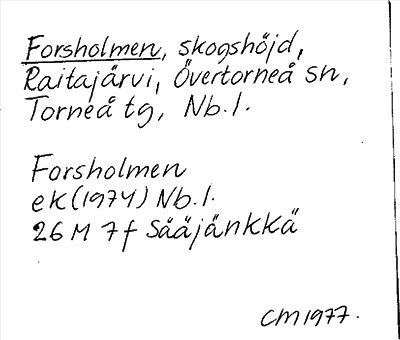 Forsholmen, skogshöjd,
Raitajärvi, Övertorneå sn,
Torneå tg, Nb. l.
Forsholmen
ek (1974) Nb. l.
26 M 7 f Sääjänkkä
CM 1977.